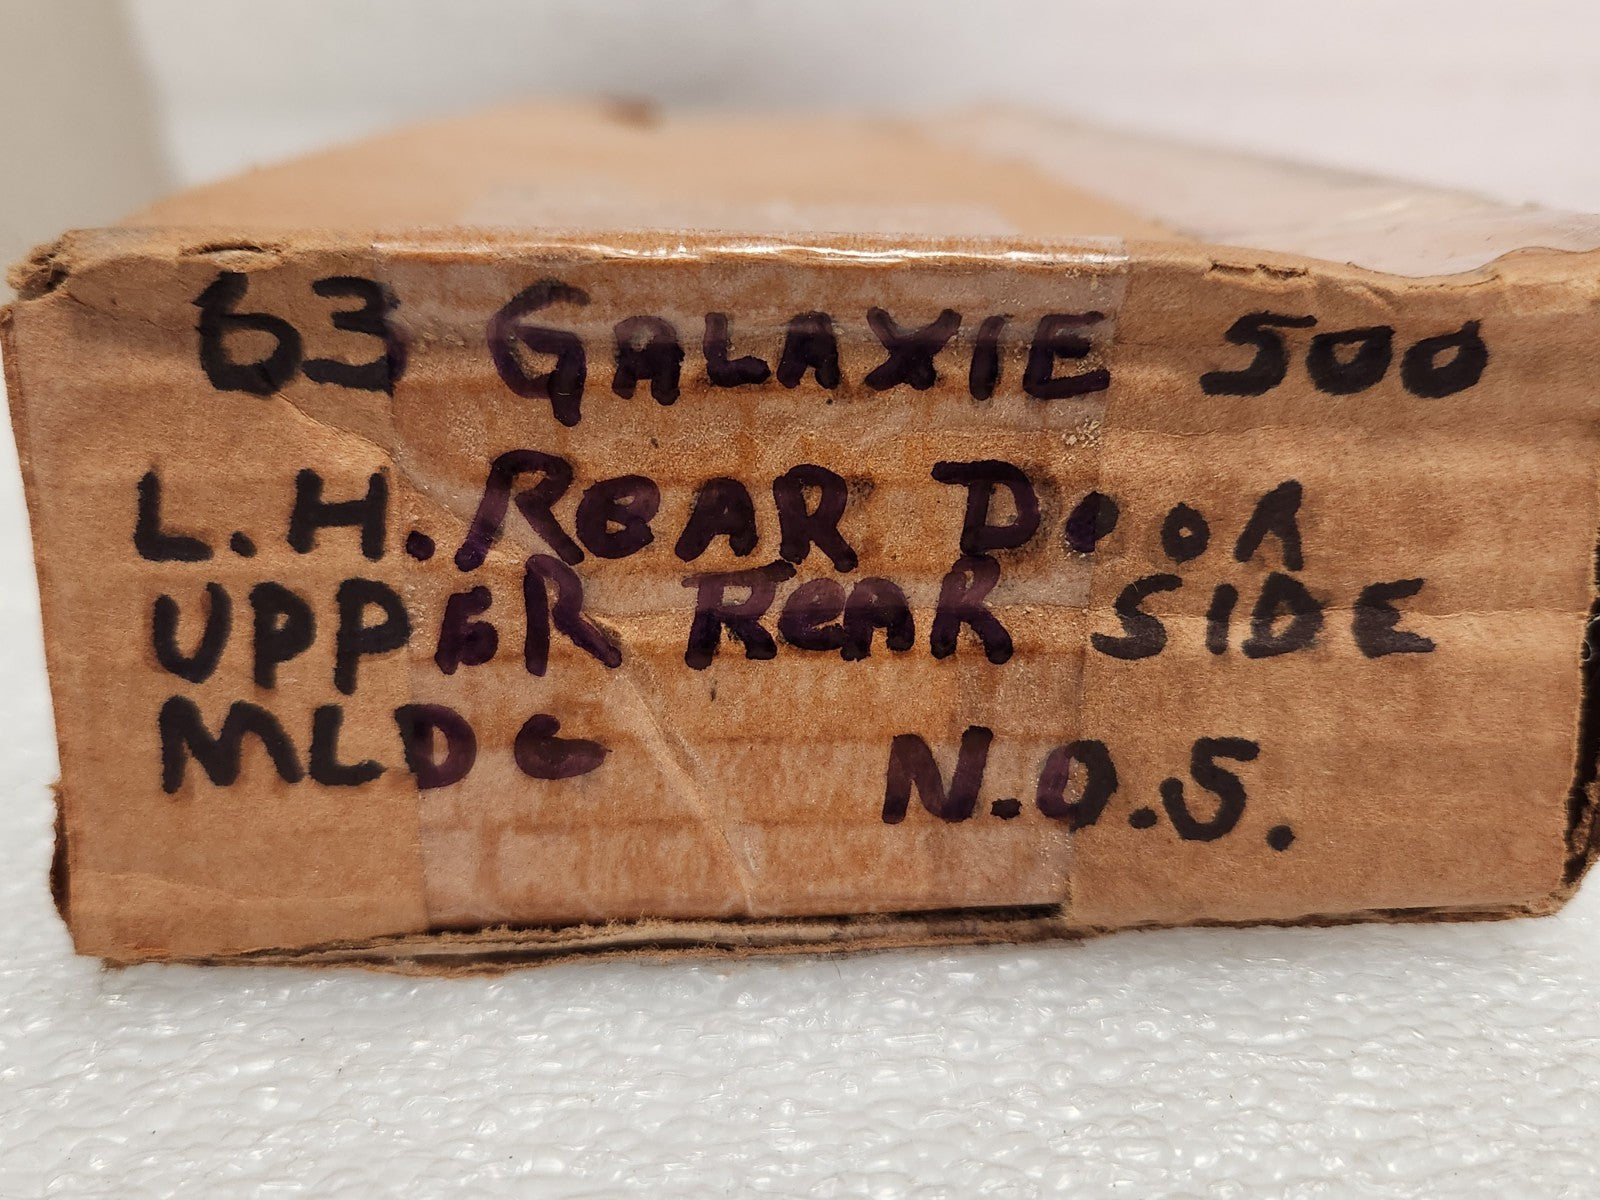 63 GALAXIE 500
L.H. REAR DOOR
UPPER REAR SIDE
MLDG N.O.S.